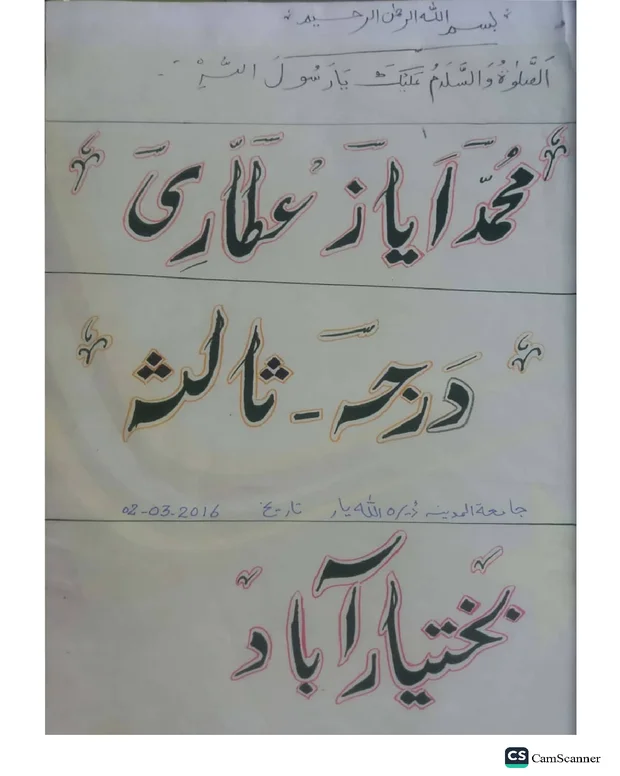 بسم اللہ الرحمٰن الرحیم
اَلصَّلٰوۃُ وَالسَّلَامُ عَلَیْکَ یَا رَسُوْلَ اللہِ
مُحمّد اَیاز عطّاری
دَرجہ - ثالثہ
جامعۃ المدینہ ڈیرہ اللہ یار تاریخ 02-03-2016
بختیار آباد
CS CamScanner